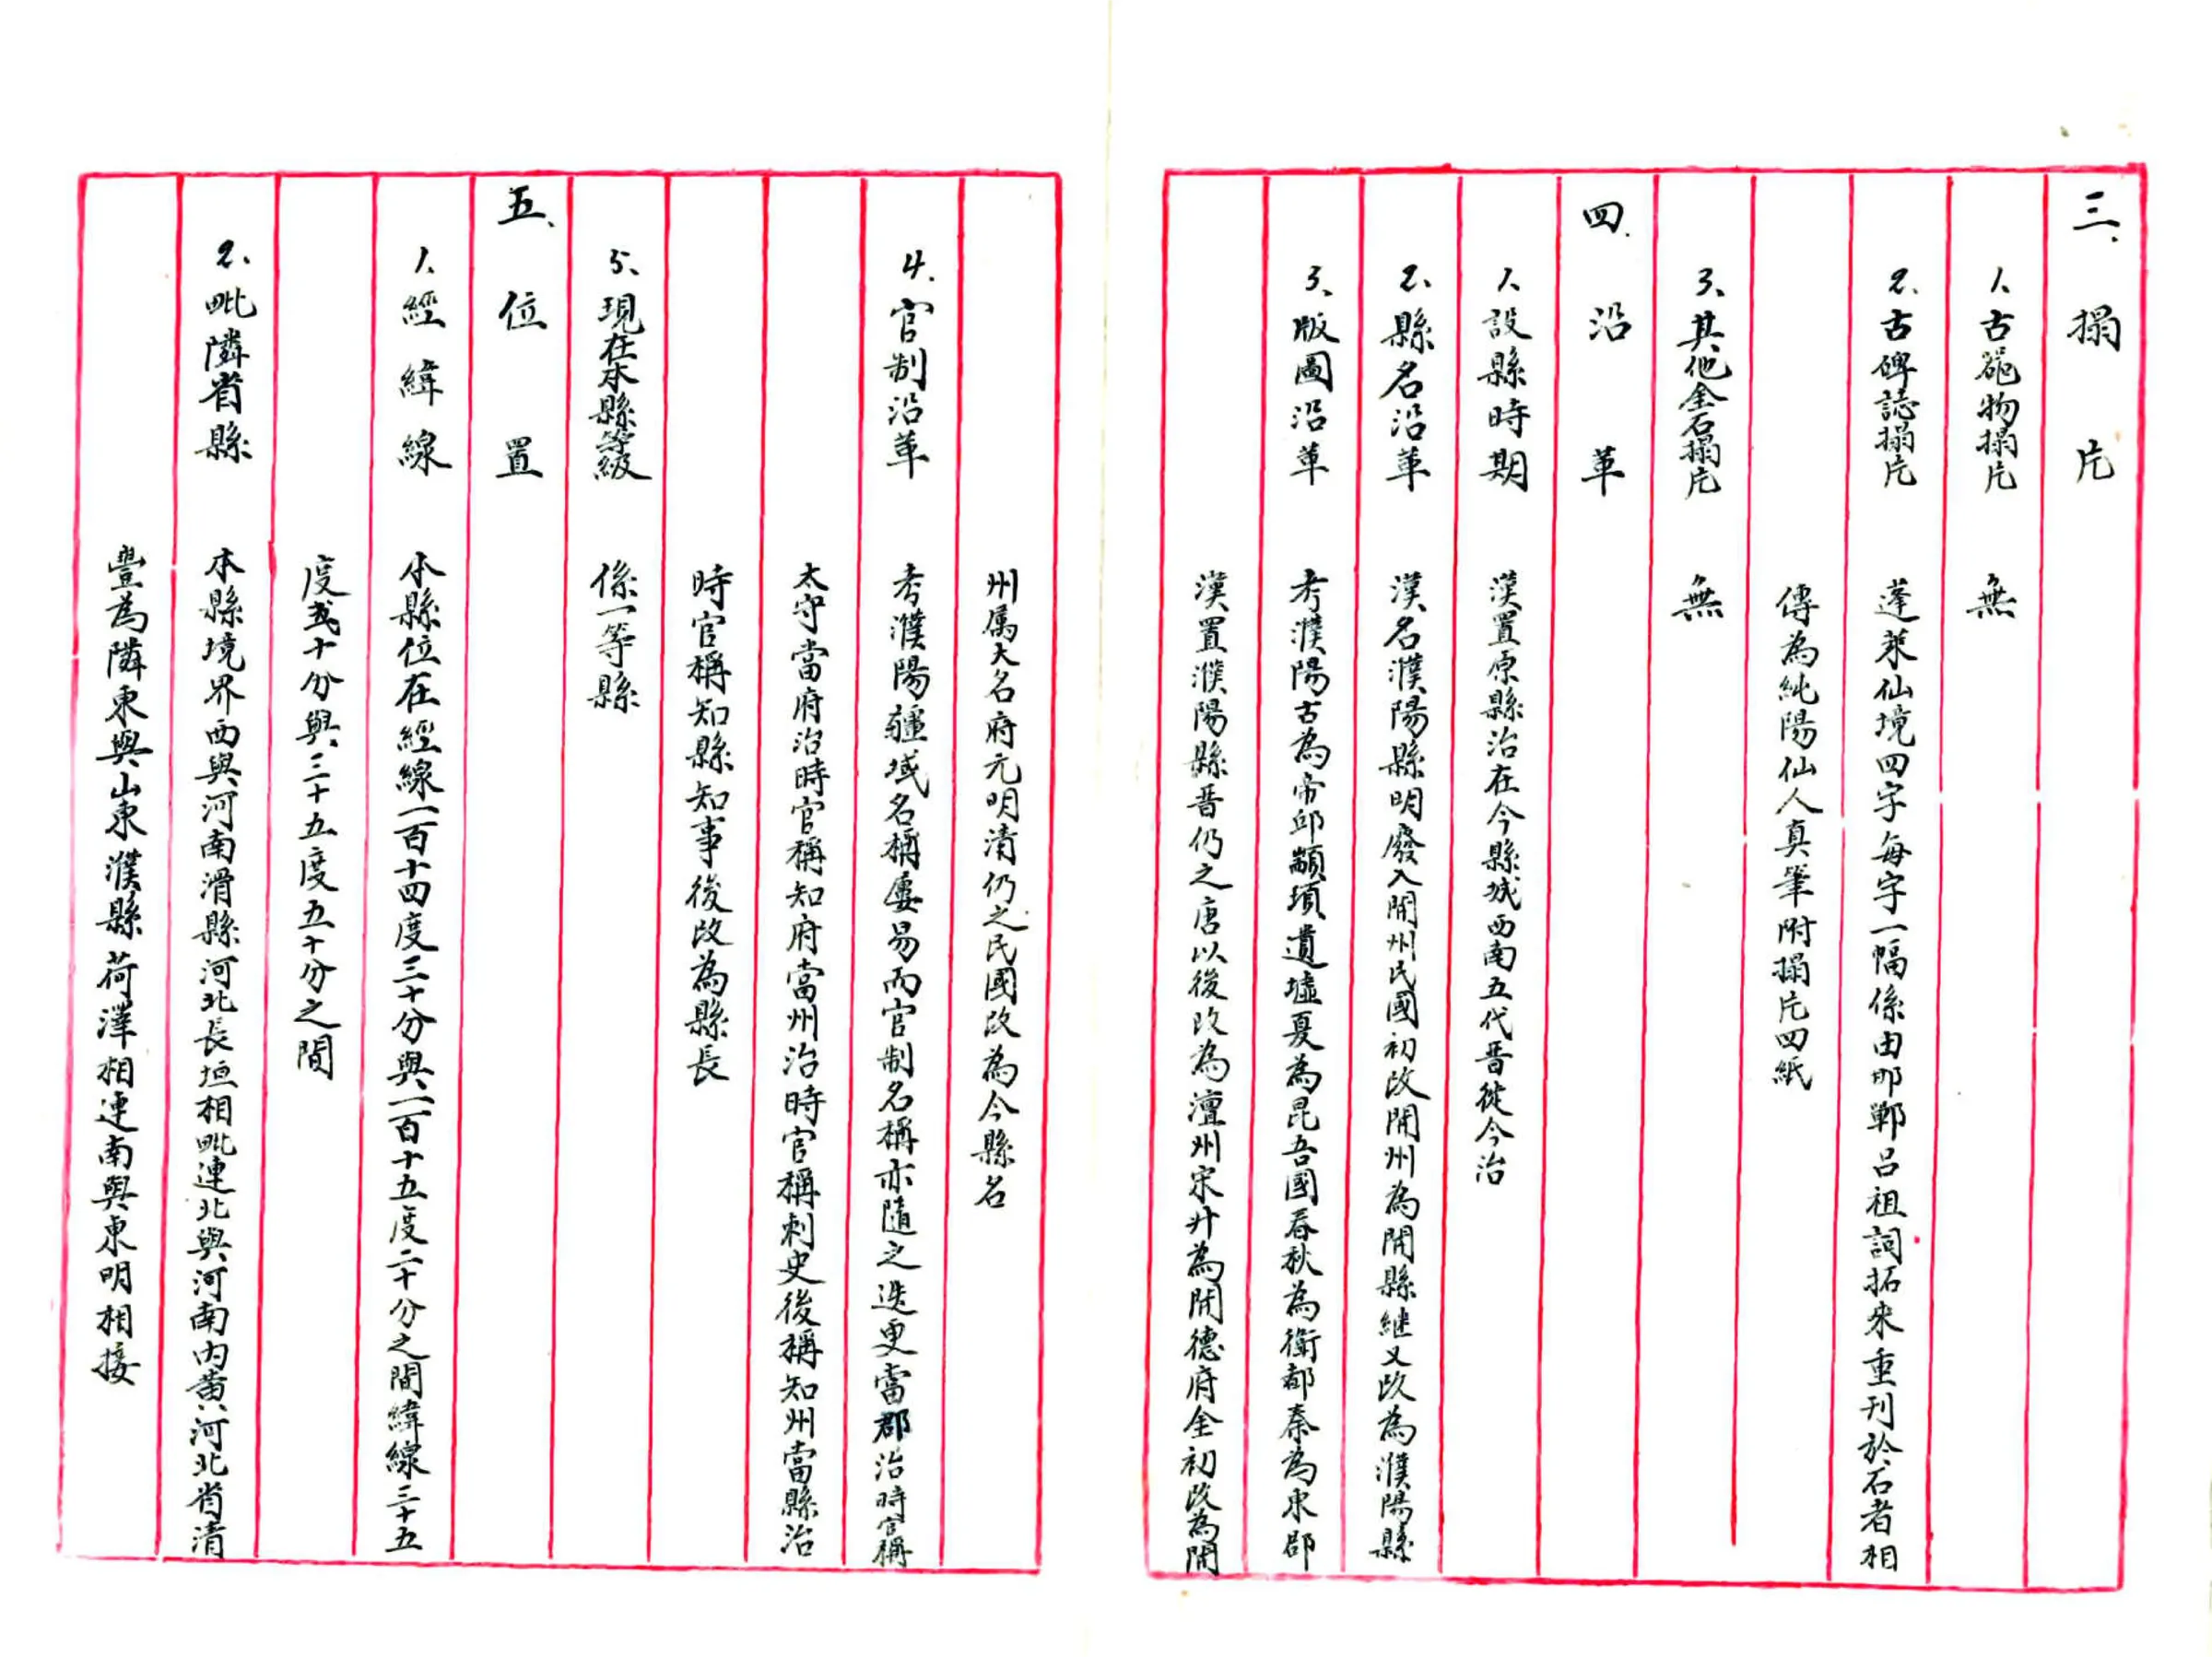 三、搨片
1、古器物搨片　無
2、古碑誌搨片　蓬萊仙境四字每字一幅係由邯鄲呂祖詞拓來重刊於石者相
傳為純陽仙人真筆附搨片四紙
3、其他金石搨片　無
四、沿革
1、設縣時期　漢置原縣治在今縣城西南五代晋徙今治
2、縣名沿革　漢名濮陽縣明廢入開州民國初改開州為開縣継又改為濮陽縣
3、版圖沿革　考濮陽古為帝邱顓頊遺墟夏為昆吾國春秋為衛都秦為東郡
漢置濮陽縣晋仍之唐以後改為澶州宋升為開德府金初改為開
州属大名府元明清仍之民國改為今縣名
4、官制沿革　考濮陽疆域名稱屢易而官制名稱亦隨之迭更當郡治時官稱
太守當府治時官稱知府當州治時官稱刺史後稱知州當縣治
時官稱知縣知事後改為縣長
5、現在本縣等級　係一等縣
五、位置
1、經緯線　本縣位在經線一百十四度三十分與一百十五度二十分之間緯線三十五
度弐十分與三十五度五十分之間
2、毗隣省縣　本縣境界西與河南滑縣河北長垣相毗連北與河南内黄河北省清
豐為隣東與山東濮縣荷澤相連南與東明相接